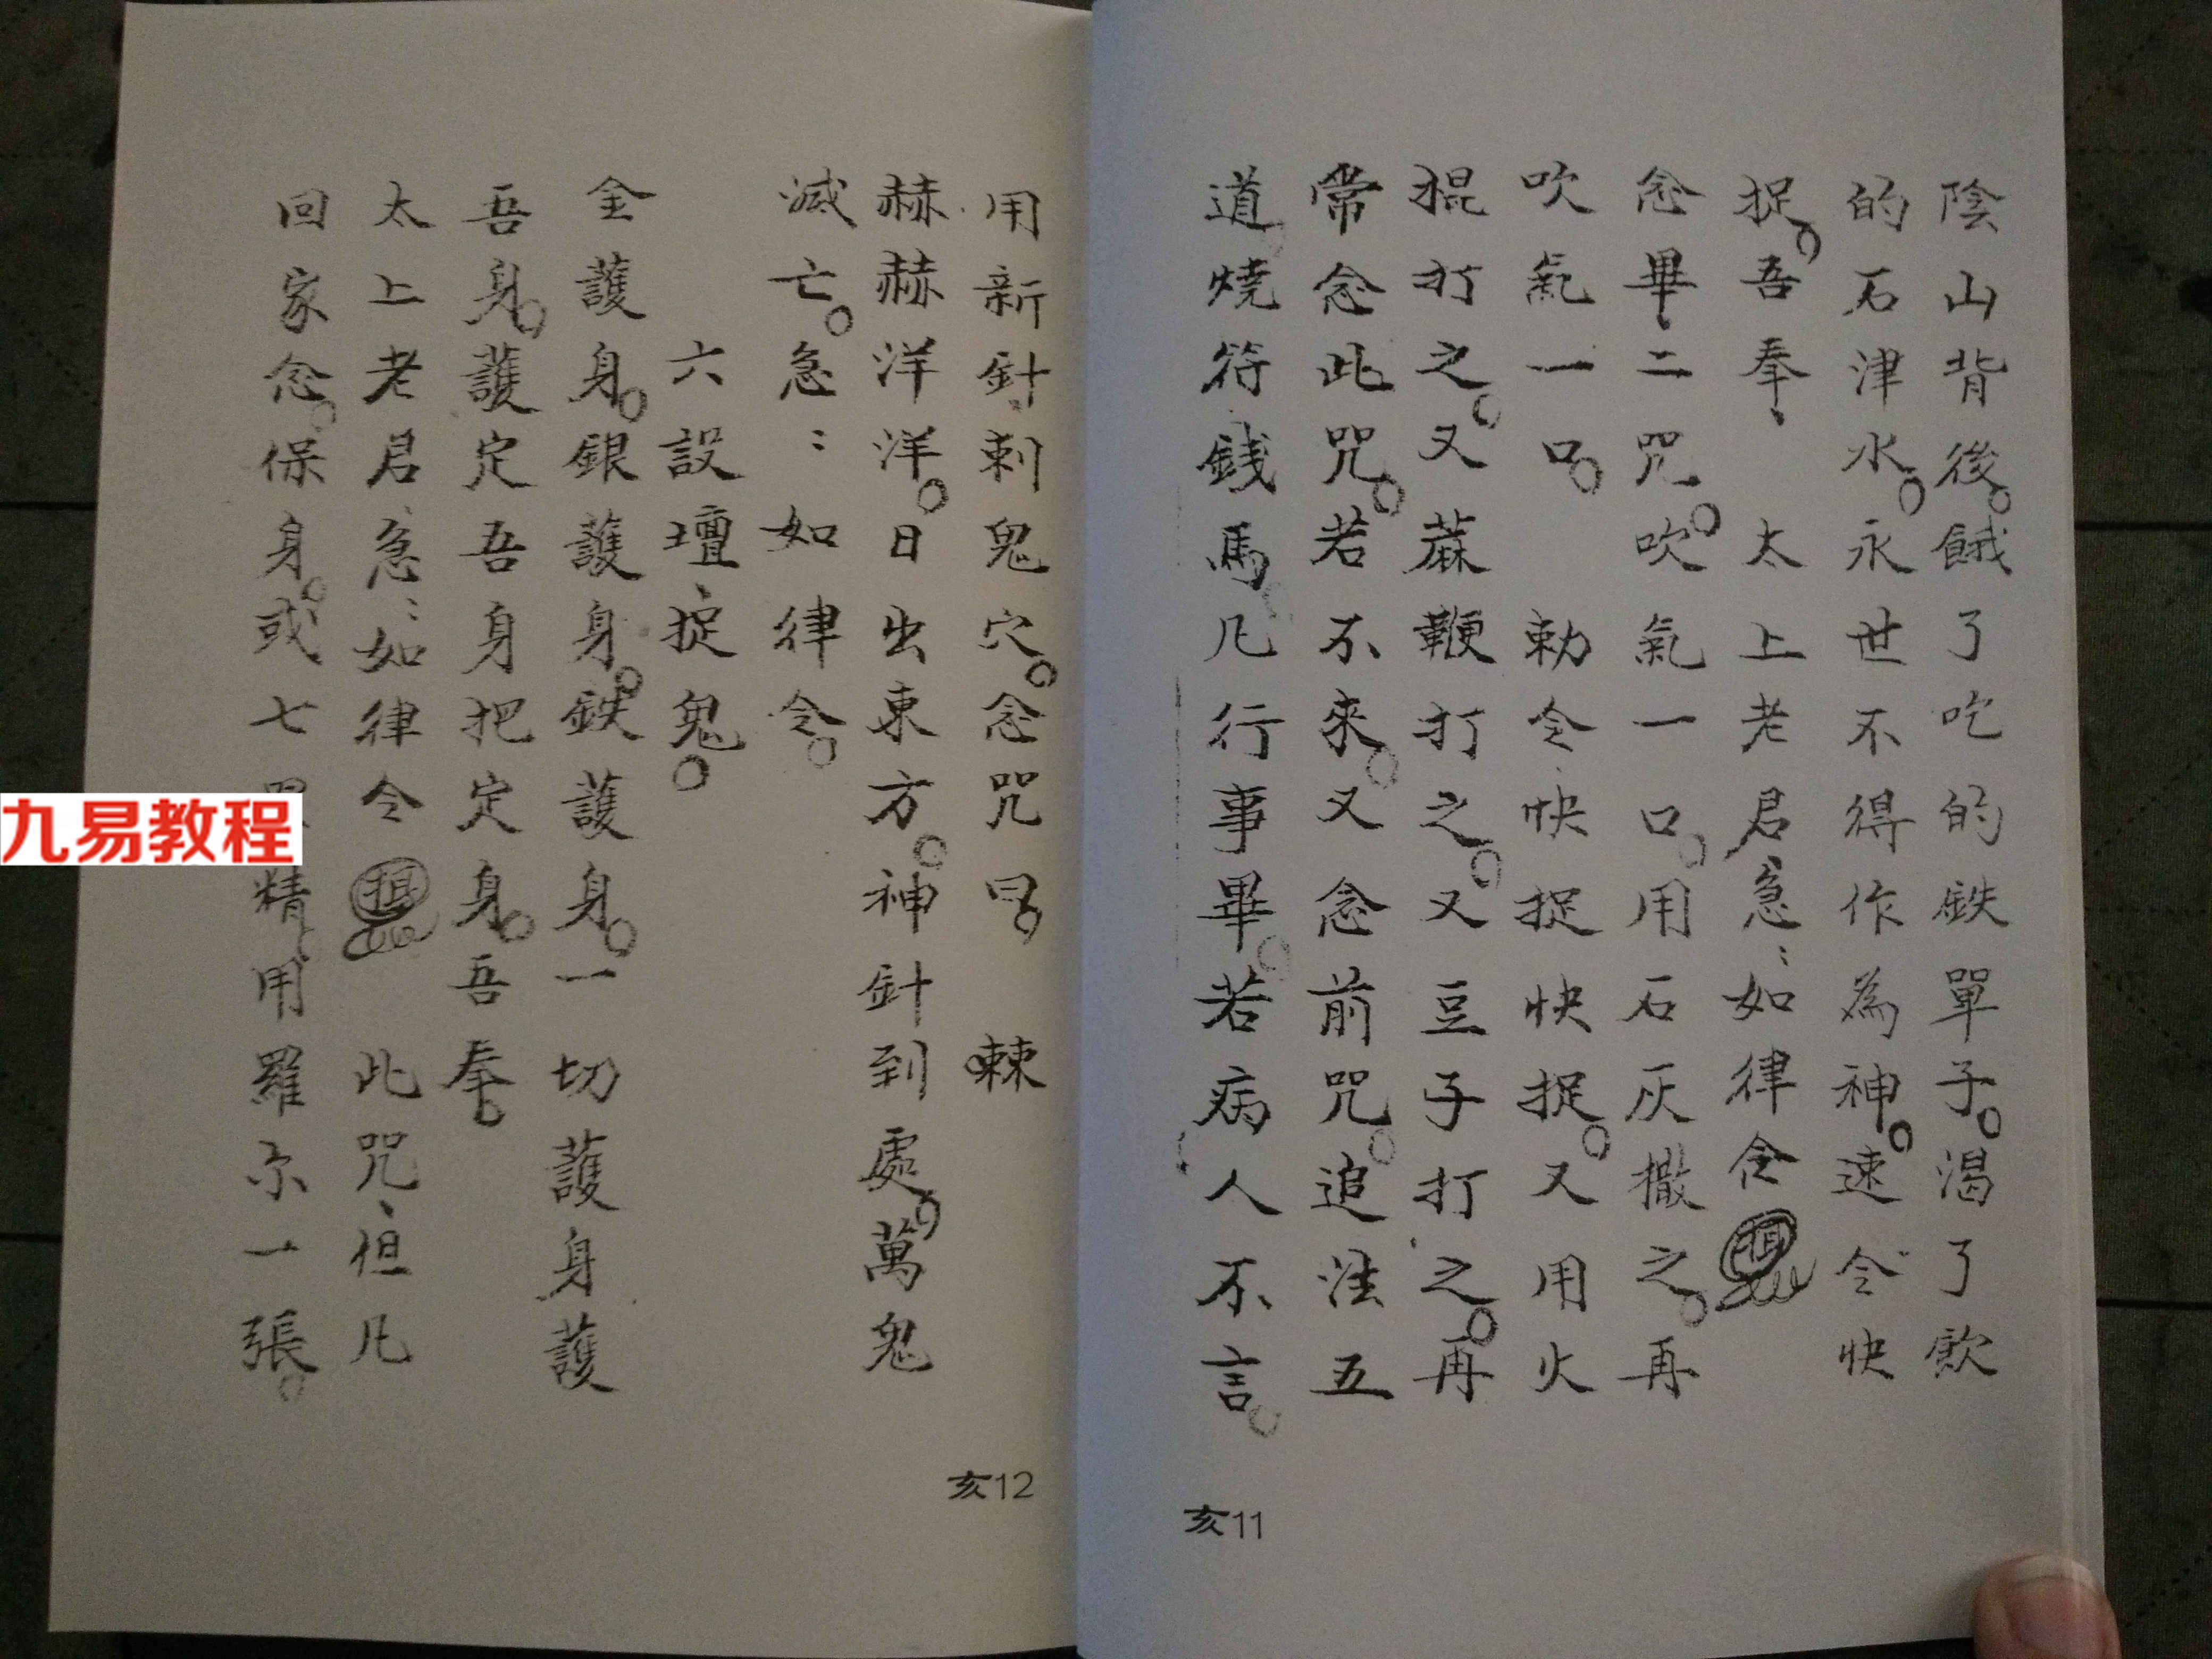 陰山背後。餓了吃的鉄單子。渴了飲
的石津水。永世不得作為神。速令快
捉。吾奉、太上老君急：如律令
念畢、二咒。吹氣一口。用石灰撒之。再
吹氣一口。勅令快捉快捉。又用火
掍打之。又蔴鞭打之。又豆子打之。再
常念此咒。若不來。又念前咒。追洼五
道燒符錢馬。凡行事畢。若病人不言。
亥11
用新針刺鬼穴。念咒曰。棘
赫赫洋洋。日出東方。神針到處。萬鬼
滅亡。急：如律令。
六設壇、捉鬼。
金護身。銀護身。鉄護身。一切護身護
吾身。護定吾身把定身。吾奉。
太上老君急：如律令 此咒、但凡
回家念。保身。或七精、用羅尔一張。
亥12
九易教程